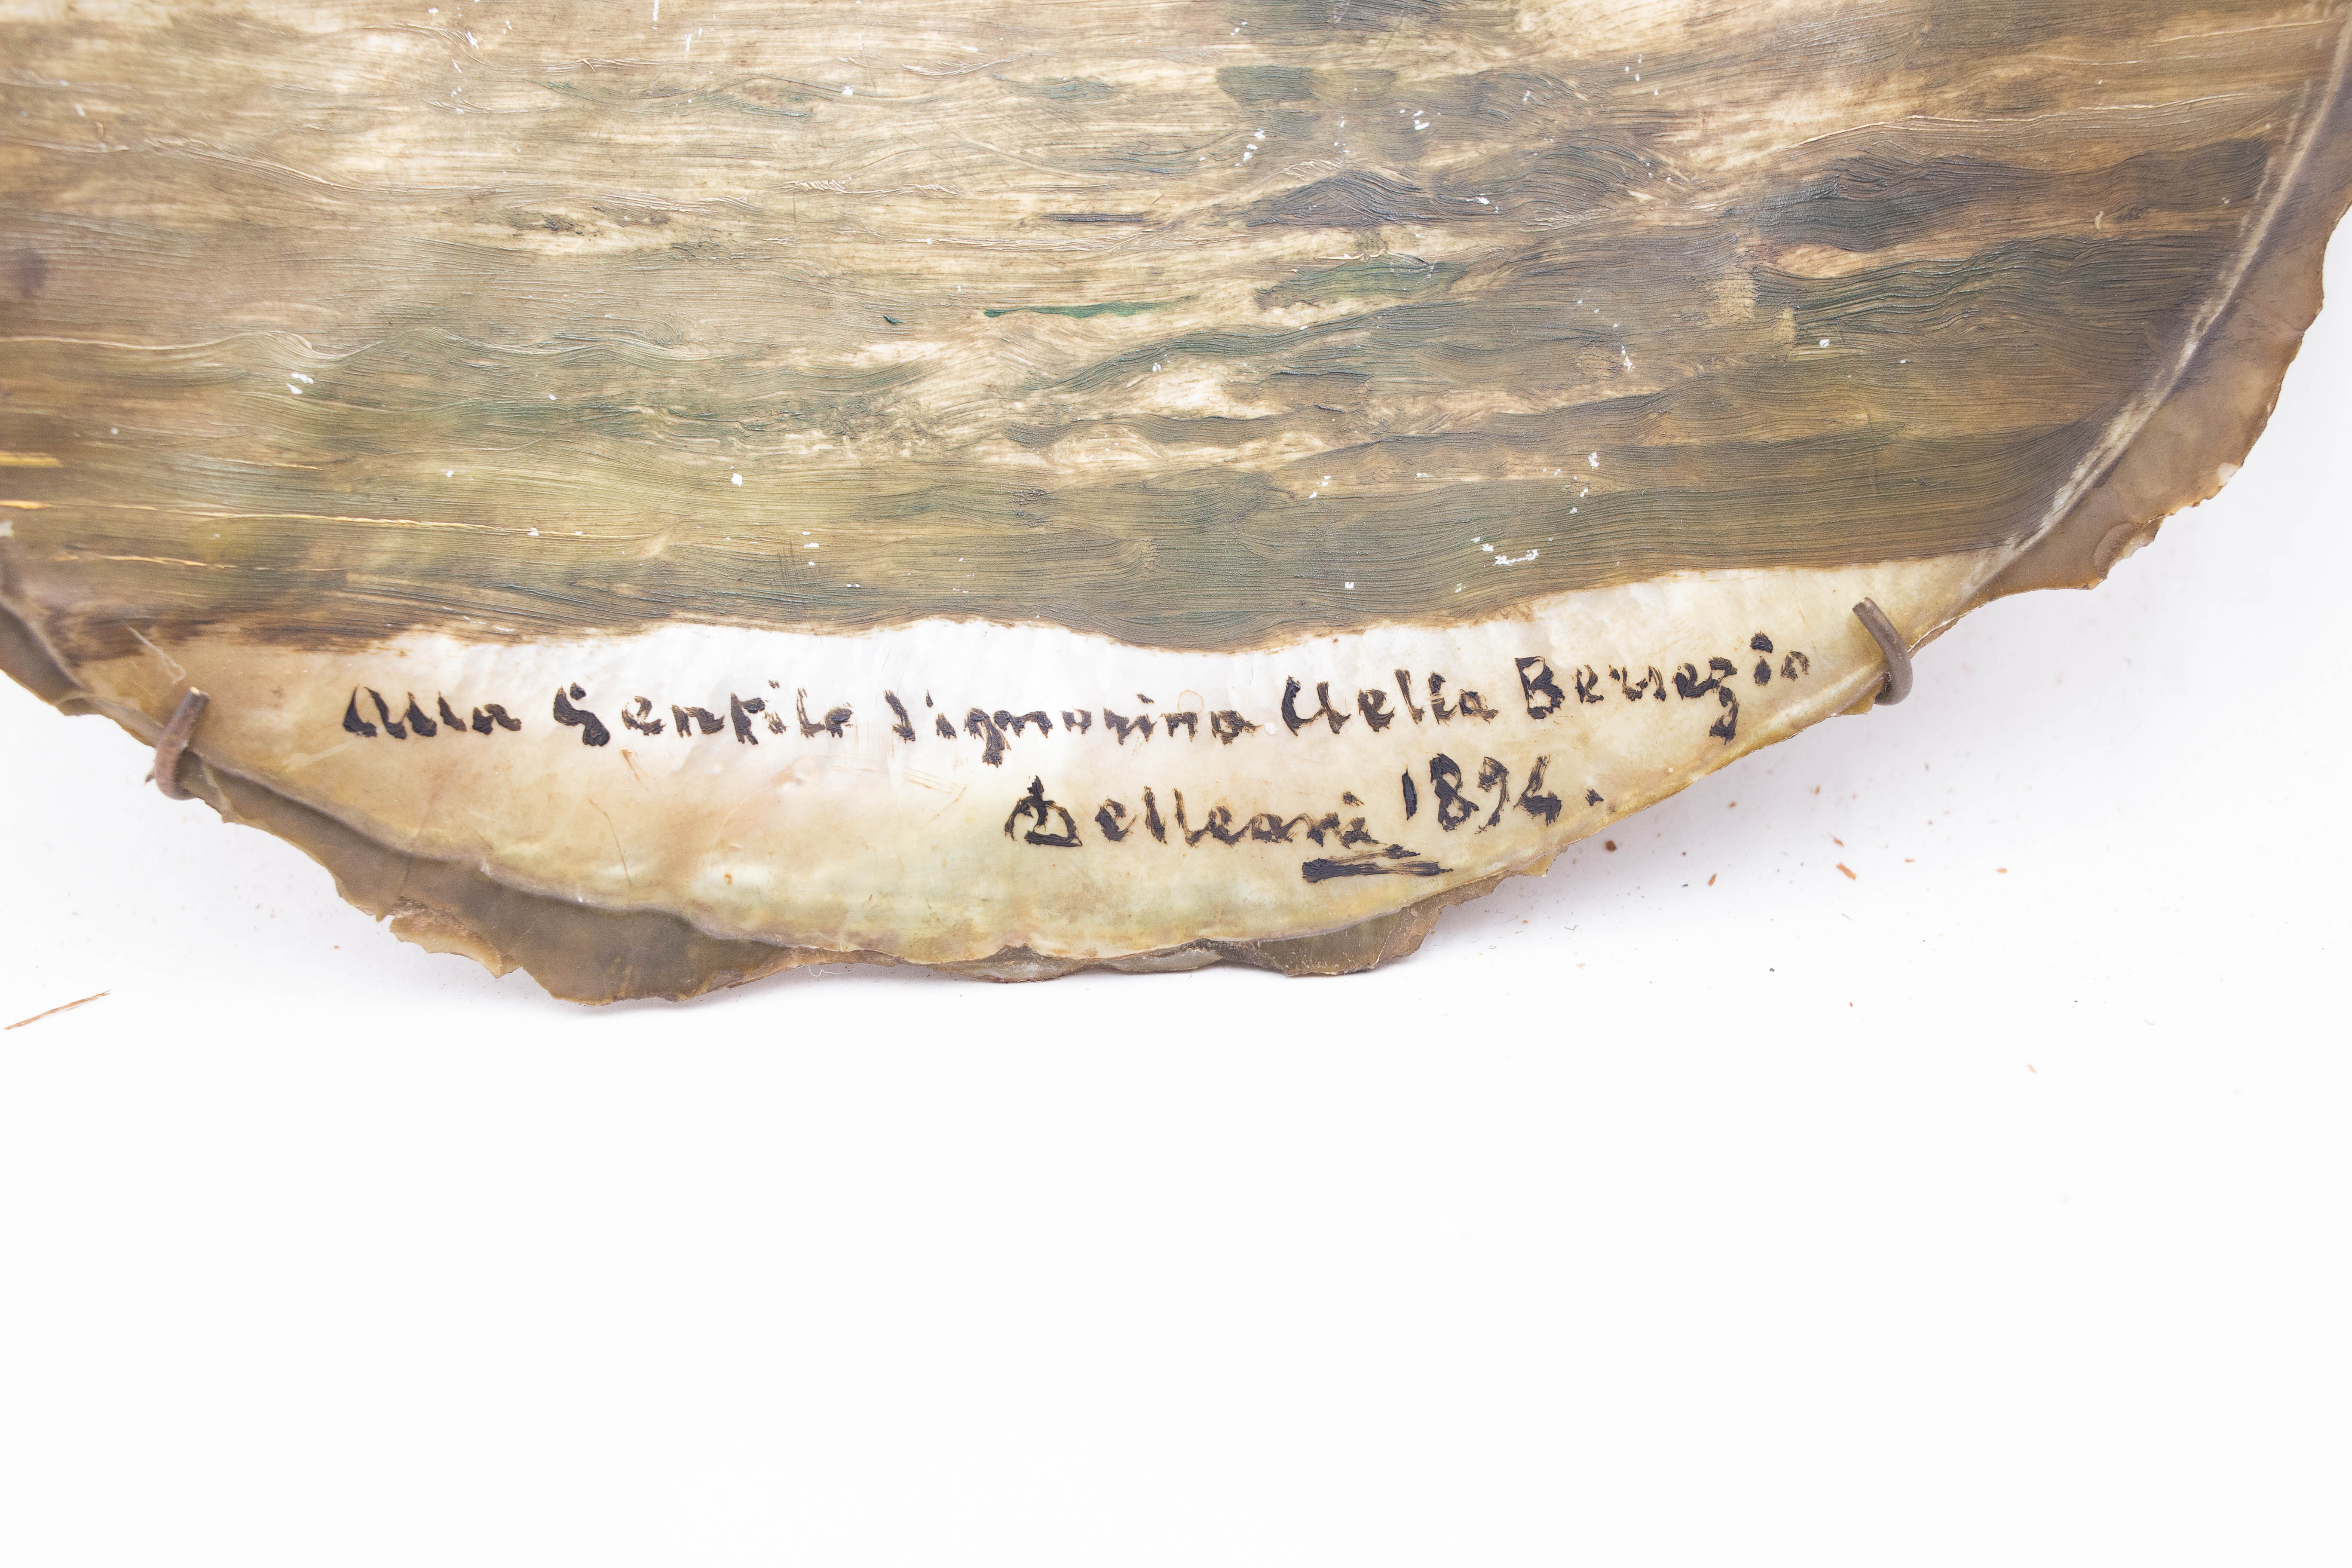 Alla Gentile Signorina Clelia Bersezio
Delleani 1894.